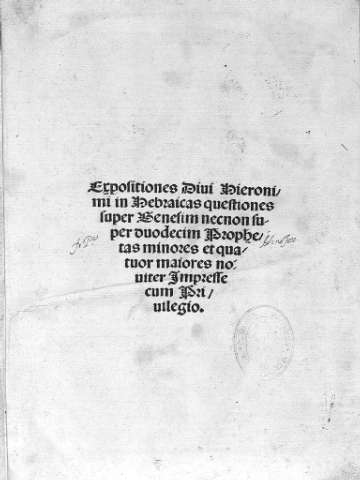 Expositiones Diui Hieroni/
mi in Hebraicas questiones
super Genesim necnon su/
per duodecim Prophe/
tas minores et qua/
tuor maiores no:
uiter Impresse
cum Pri/
uilegio.